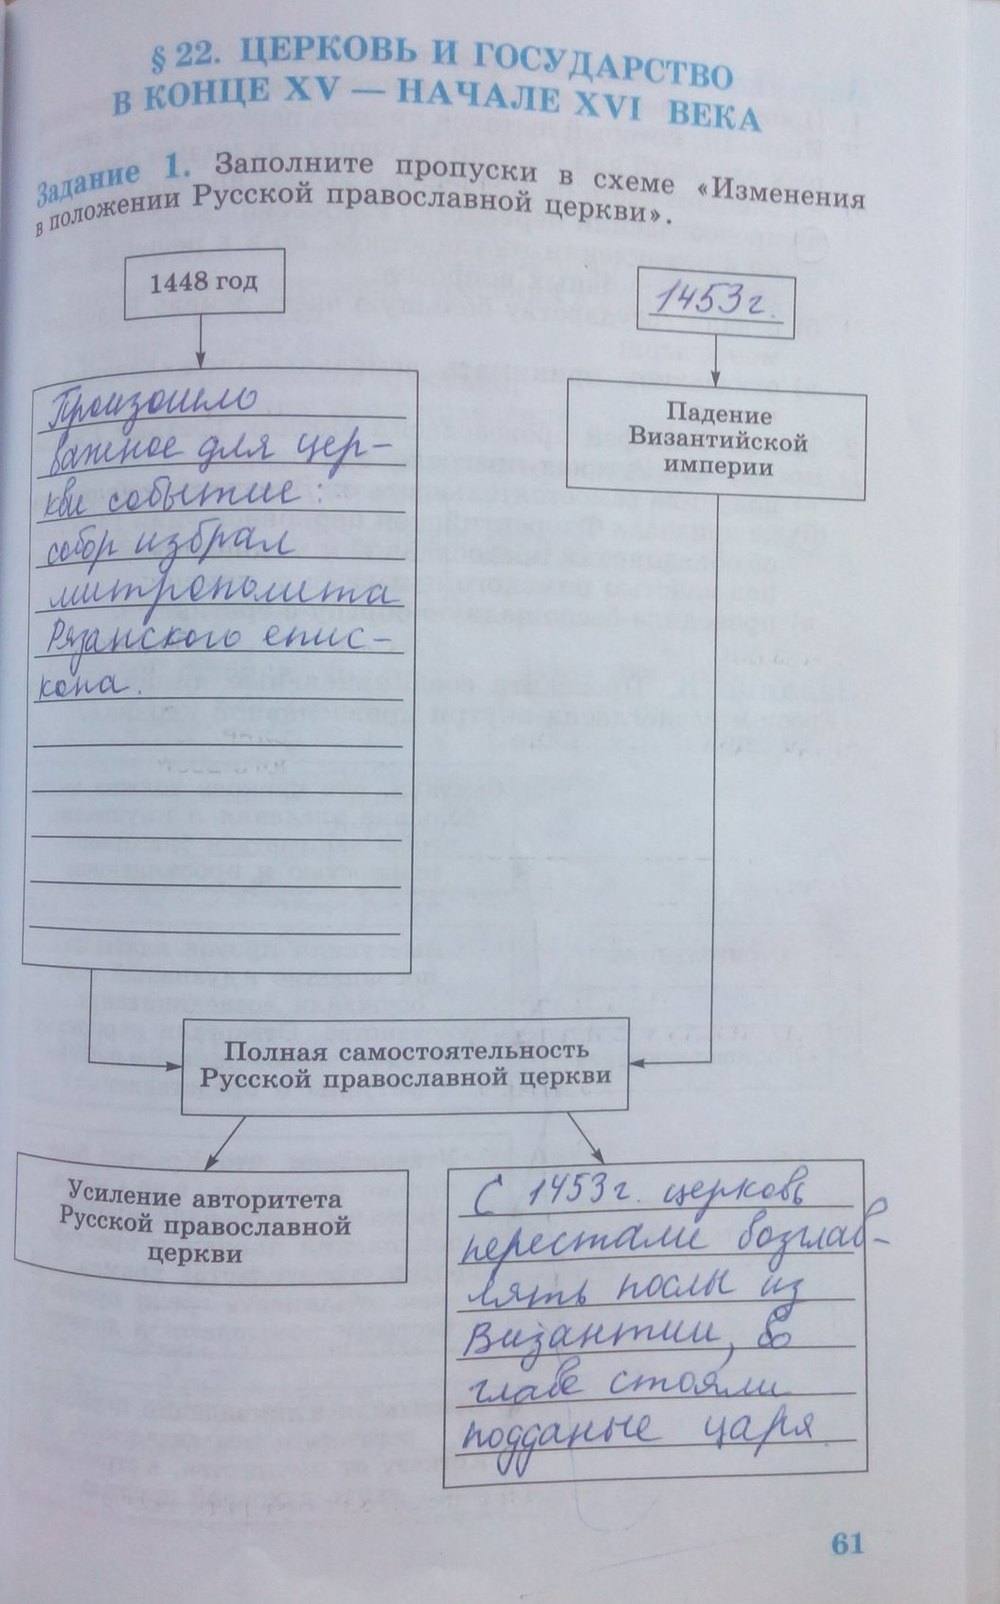 § 22. ЦЕРКОВЬ И ГОСУДАРСТВО
В КОНЦЕ XV — НАЧАЛЕ XVI ВЕКА
Задание 1. Заполните пропуски в схеме «Изменения
в положении Русской православной церкви».
1448 год
1453г.
Произошло
важное для цер-
кви событие:
собор избрал
митрополита
Рязанского епис-
копа.
Падение
Византийской
империи
Полная самостоятельность
Русской православной церкви
Усиление авторитета
Русской православной
церкви
С 1453г. церковь
перестали возглав-
лять послы из
Византии, во
главе стояли
подданые царя
61